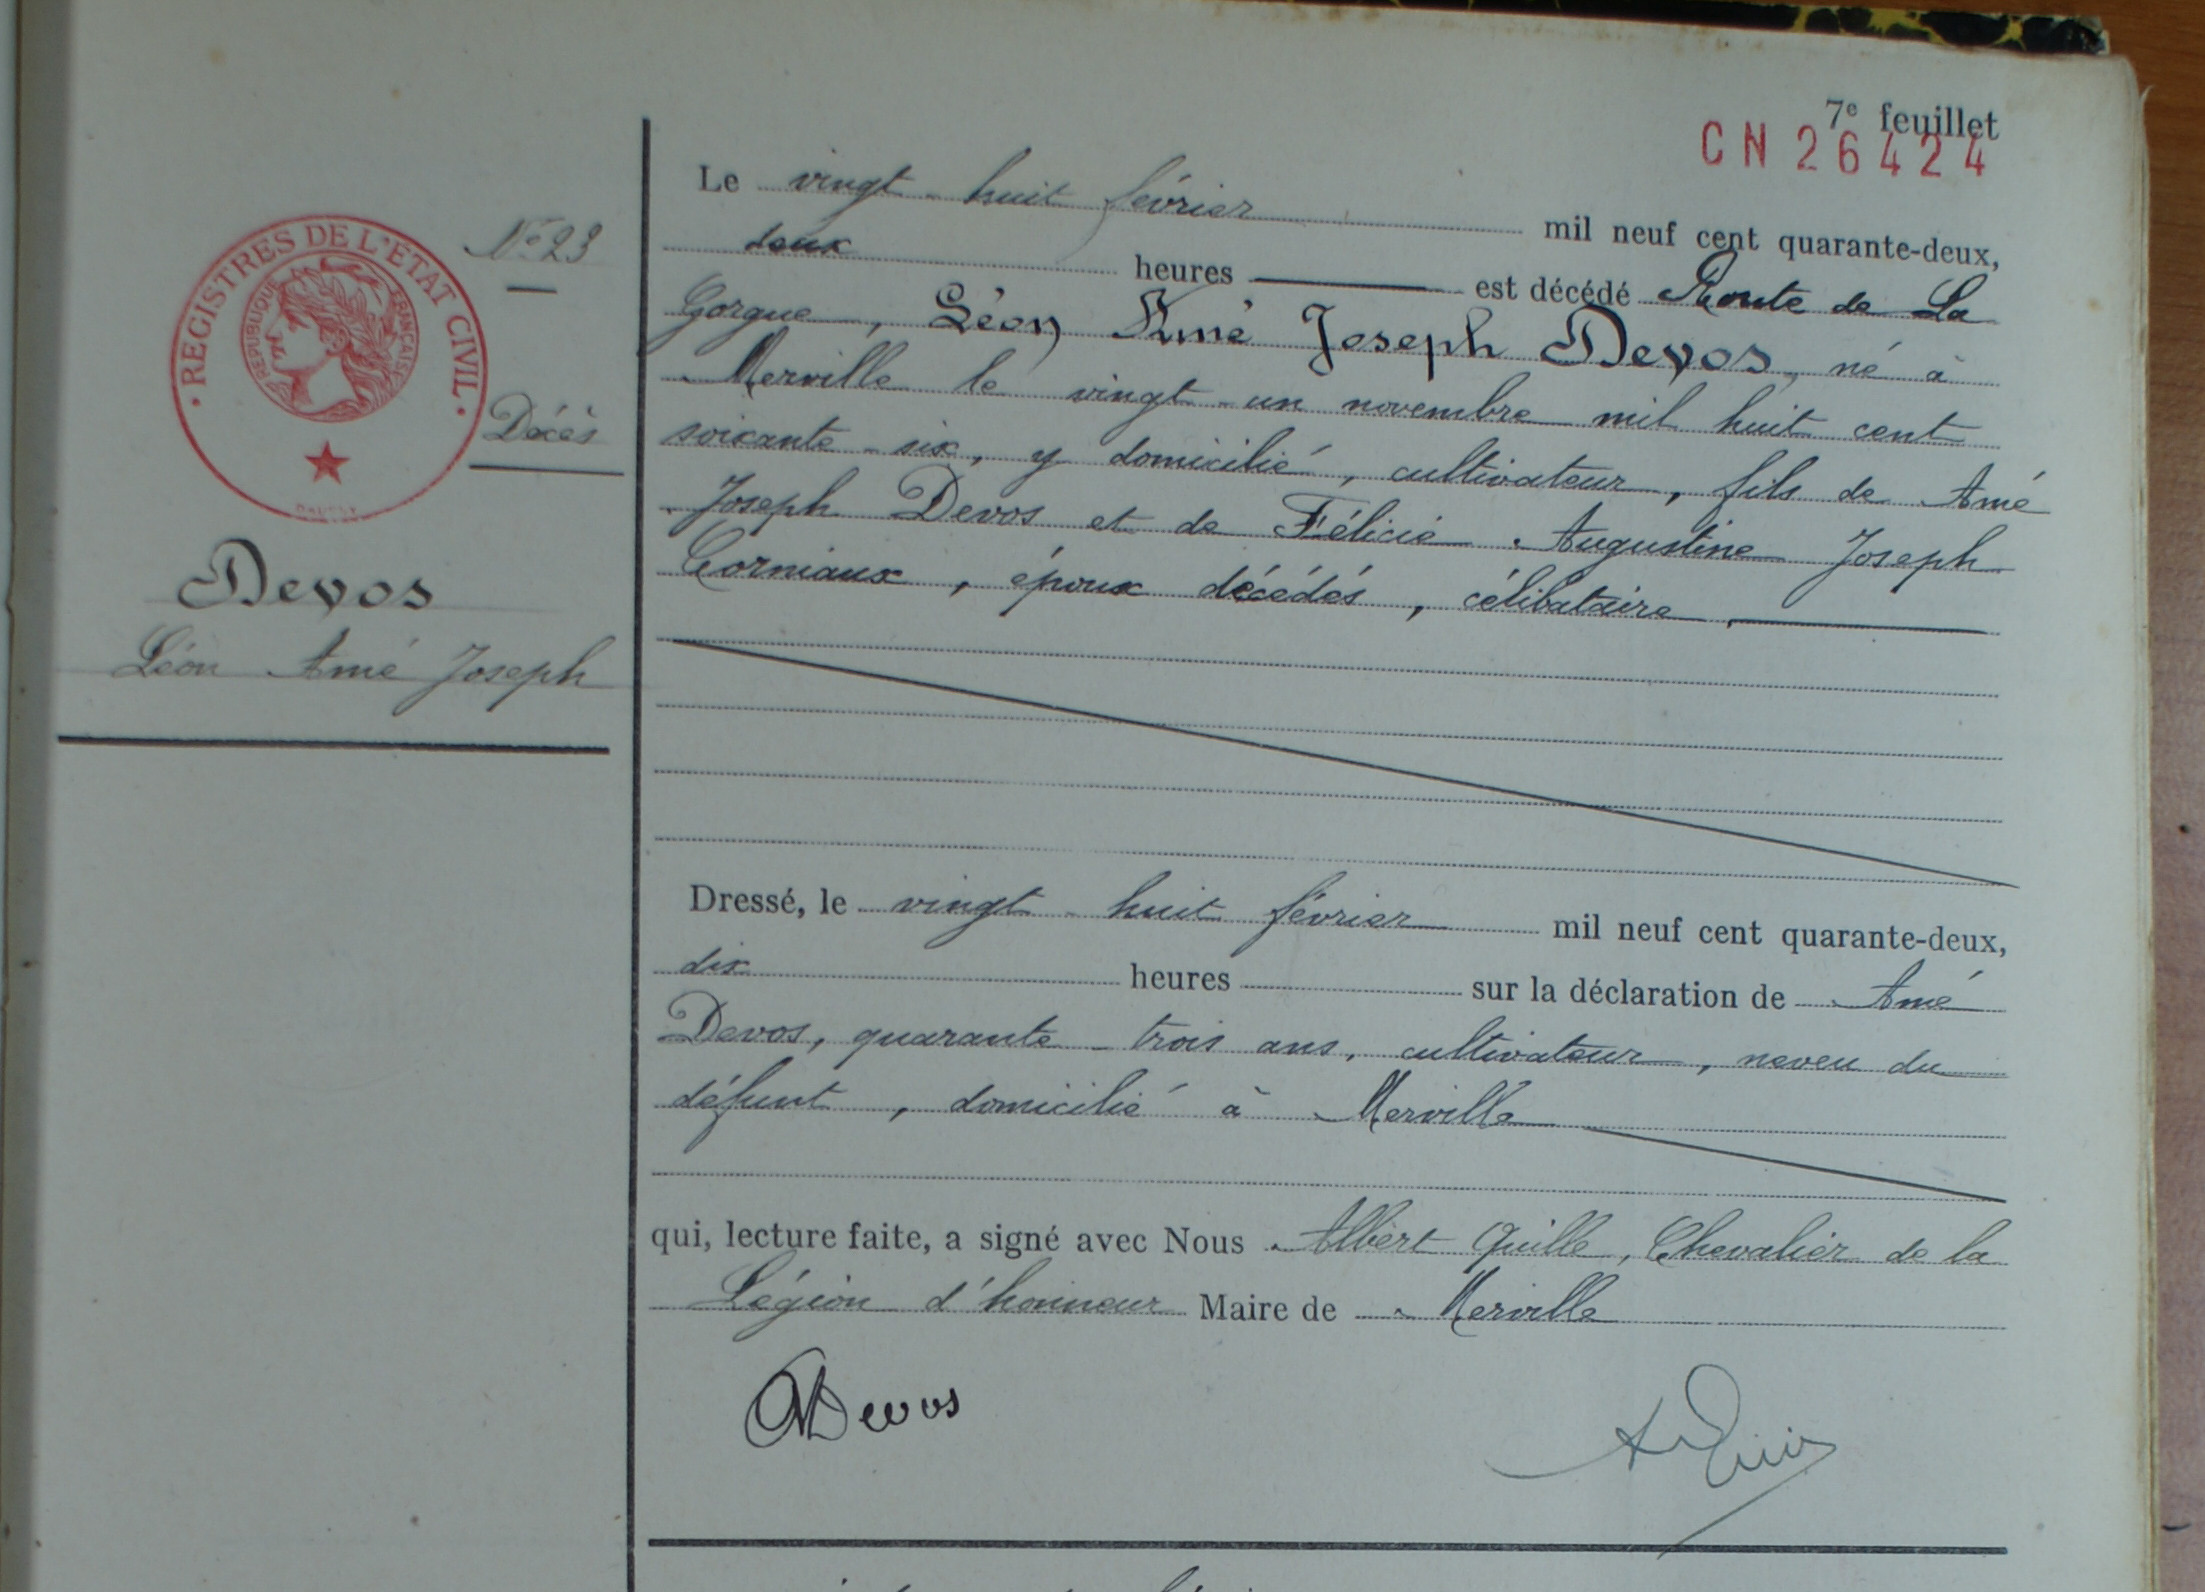 7e feuillet
CN 26424
REGISTRES DE L'ÉTAT CIVIL
RÉPUBLIQUE FRANÇAISE
N° 23
Décès
Devos
Léon Amé Joseph
Le vingt-huit février mil neuf cent quarante-deux,
deux heures est décédé Route de La
Gorgue, Léon Amé Joseph Devos, né à
Merville le vingt-un novembre mil huit cent
soixante-six, y domicilié, cultivateur, fils de Amé
Joseph Devos et de Félicie Augustine Joseph
Corniaux, époux décédés, célibataire,
Dressé, le vingt-huit février mil neuf cent quarante-deux,
dix heures sur la déclaration de Amé
Devos, quarante-trois ans, cultivateur, neveu du
défunt, domicilié à Merville
qui, lecture faite, a signé avec Nous Albert Quille, Chevalier de la
Légion d'honneur Maire de Merville
Devos